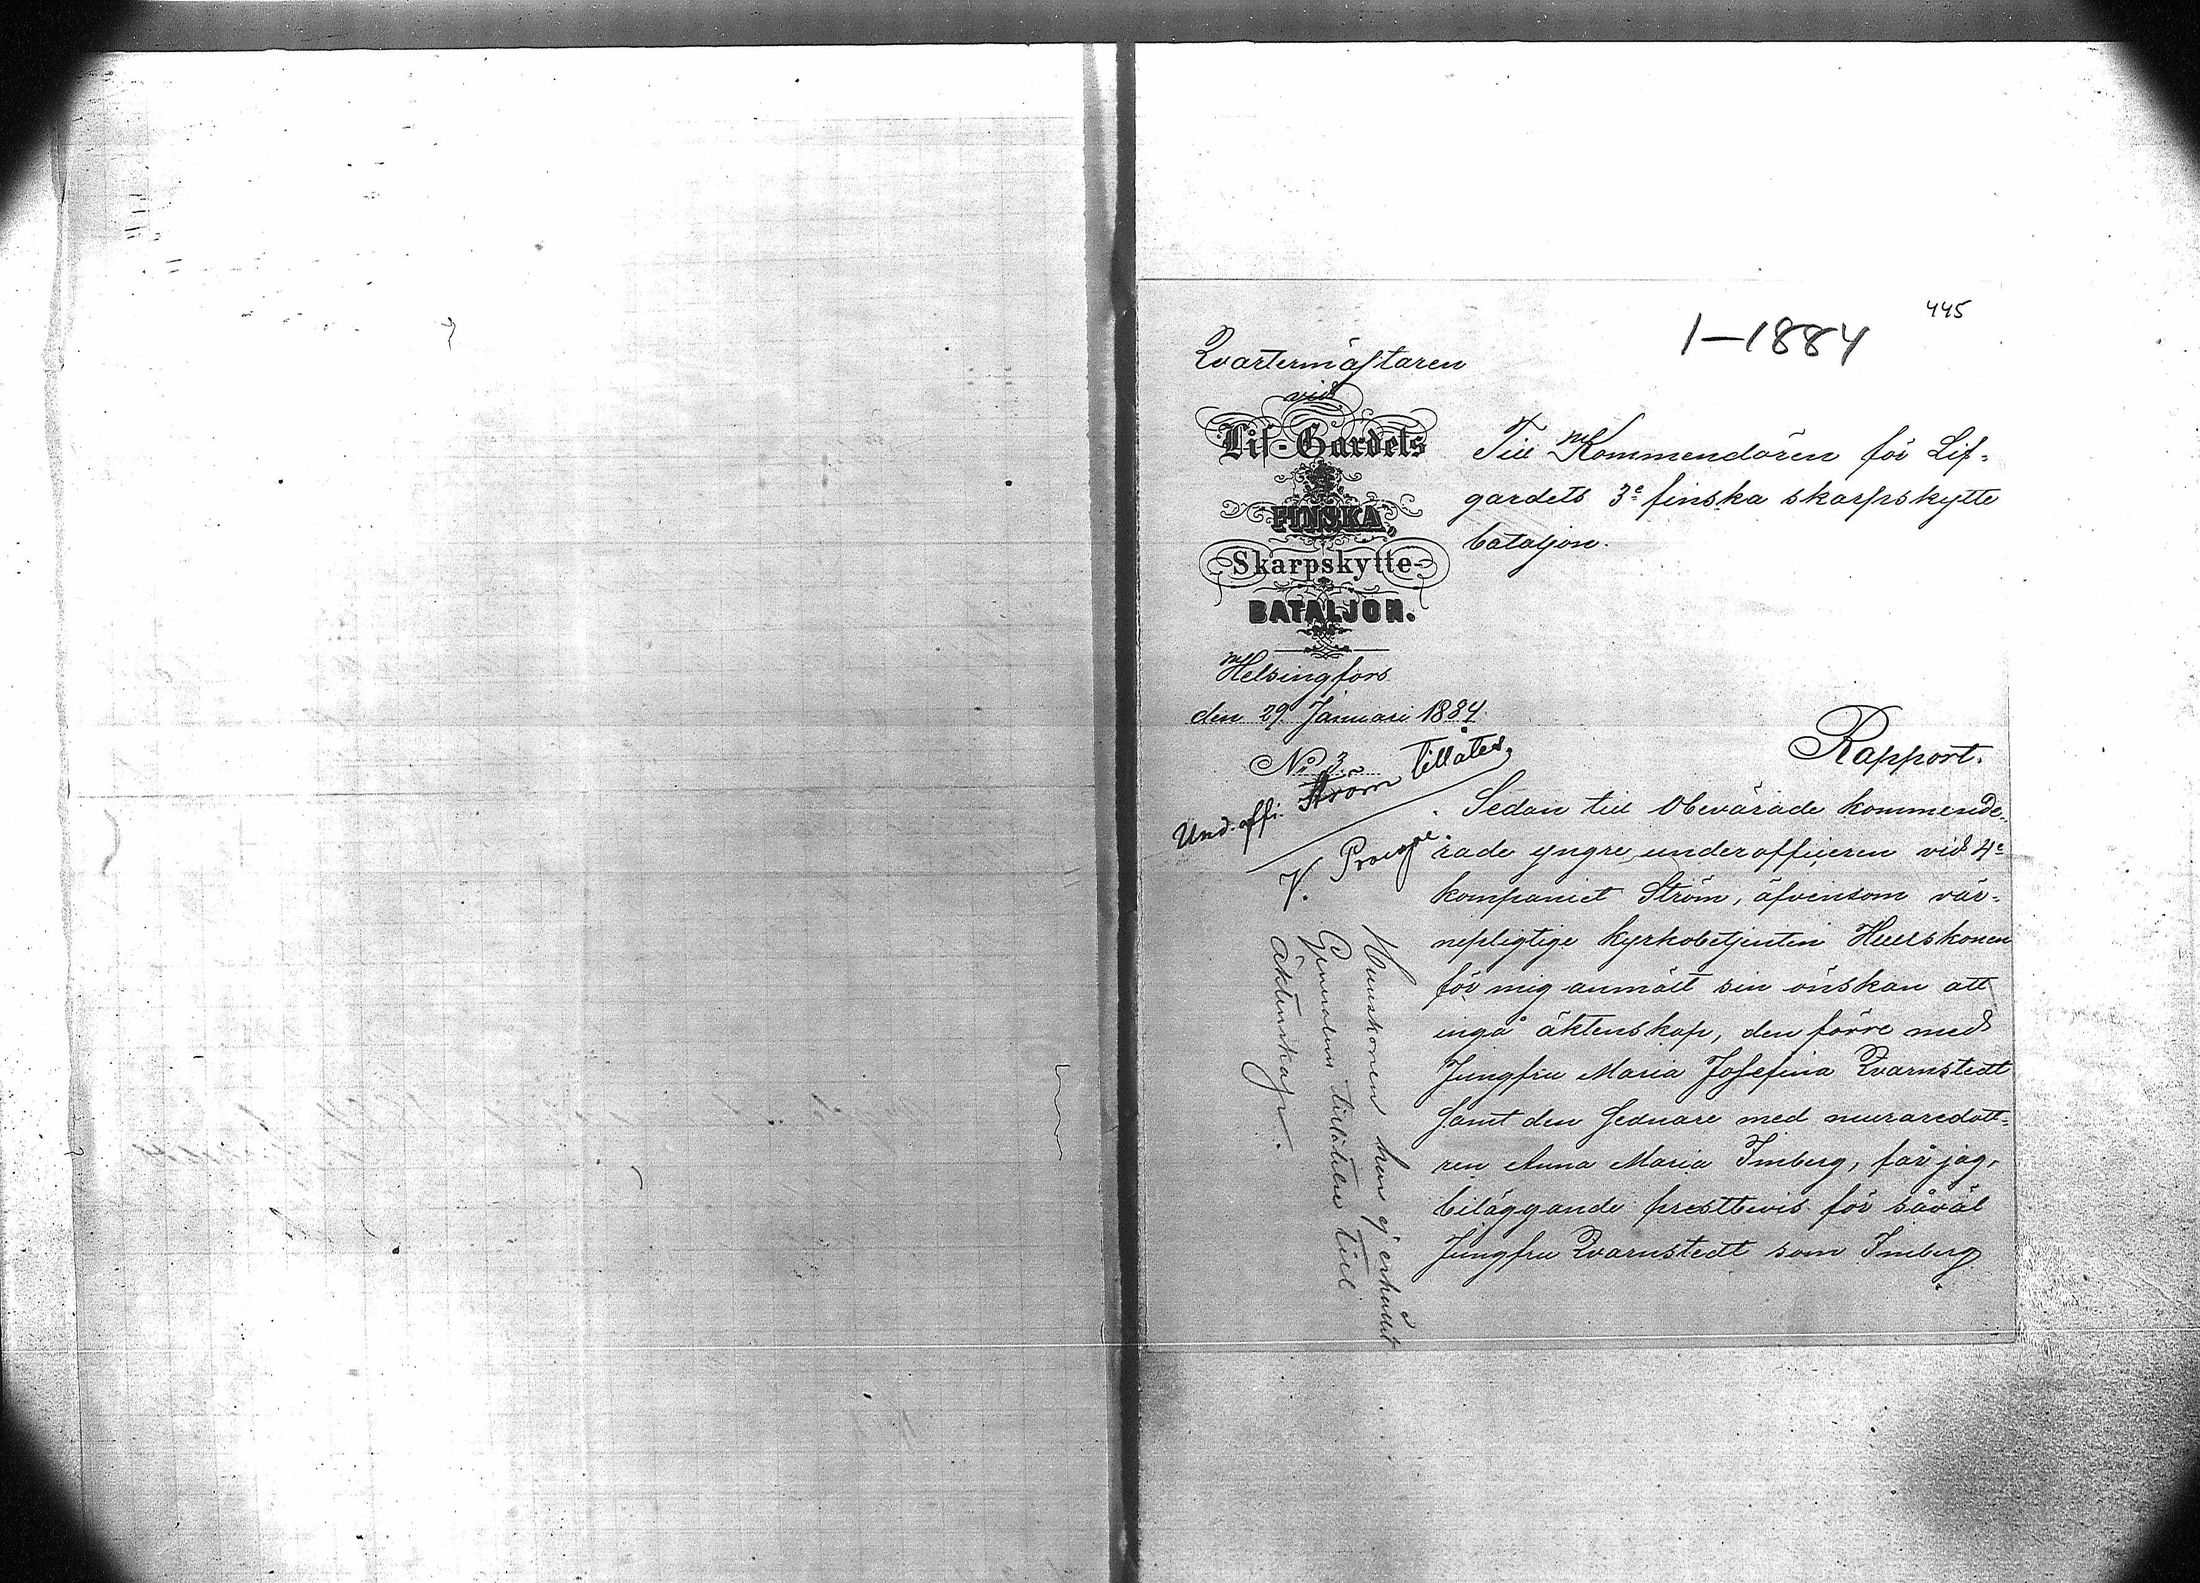 445
1-1884
Qvartermästaren
vid
Lif-Gardets
FINSKA
Skarpskytte-
BATALJON.
Helsingfors
den 29 Januari 1884.
No 3.
Till Kommendören för Lif-
gardets 3e finska skarpskytte
bataljon.
Rapport.
Und. offi. Ström tillåtes,
V. Procopé.
Sedan till Obevärade kommende-
rade yngre underofficeren vid 4e
kompaniet Ström, äfvensom vär-
nepligtige kyrkobetjenten Huuskonen
för mig anmält sin önskan att
ingå äktenskap, den förre med
Jungfru Maria Josefina Qvarnstedt
samt den sednare med muraredott-
ren Anna Maria Imberg, får jag,
biläggande prestbevis för såväl
Jungfru Qvarnstedt som Imberg
Huuskonen har ej erhållit
Generalens tillåtelse till
äktenskap.